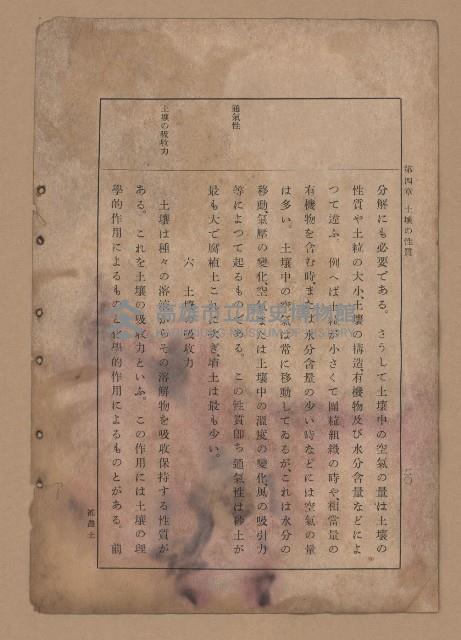 第四章 土壤の性質
二〇
分解にも必要である。さうして土壤中の空氣の量は土壤の
性質や土粒の大小、土壤の構造、有機物及び水分含量などによ
つて違ふ。例へば土粒が小さくて團粒組織の時や、相當量の
有機物を含む時、または水分含量の少い時などには空氣の量
は多い。土壤中の空氣は常に移動してゐるが、これは水分の
移動、氣壓の變化、空氣または土壤中の溫度の變化、風の吸引力
通氣性
等によつて起るものである。この性質卽ち通氣性は砂土が
最も大で腐植土これに次ぎ埴土は最も少い。
六 土壤の吸收力
土壤の吸收力
土壤は種々の溶液からその溶解物を吸收保持する性質が
ある。これを土壤の吸收力といふ。この作用には土壤の理
學的作用によるものと化學的作用によるものとがある。前
高雄市立歷史博物館
KAOHSIUNG MUSEUM OF HISTORY